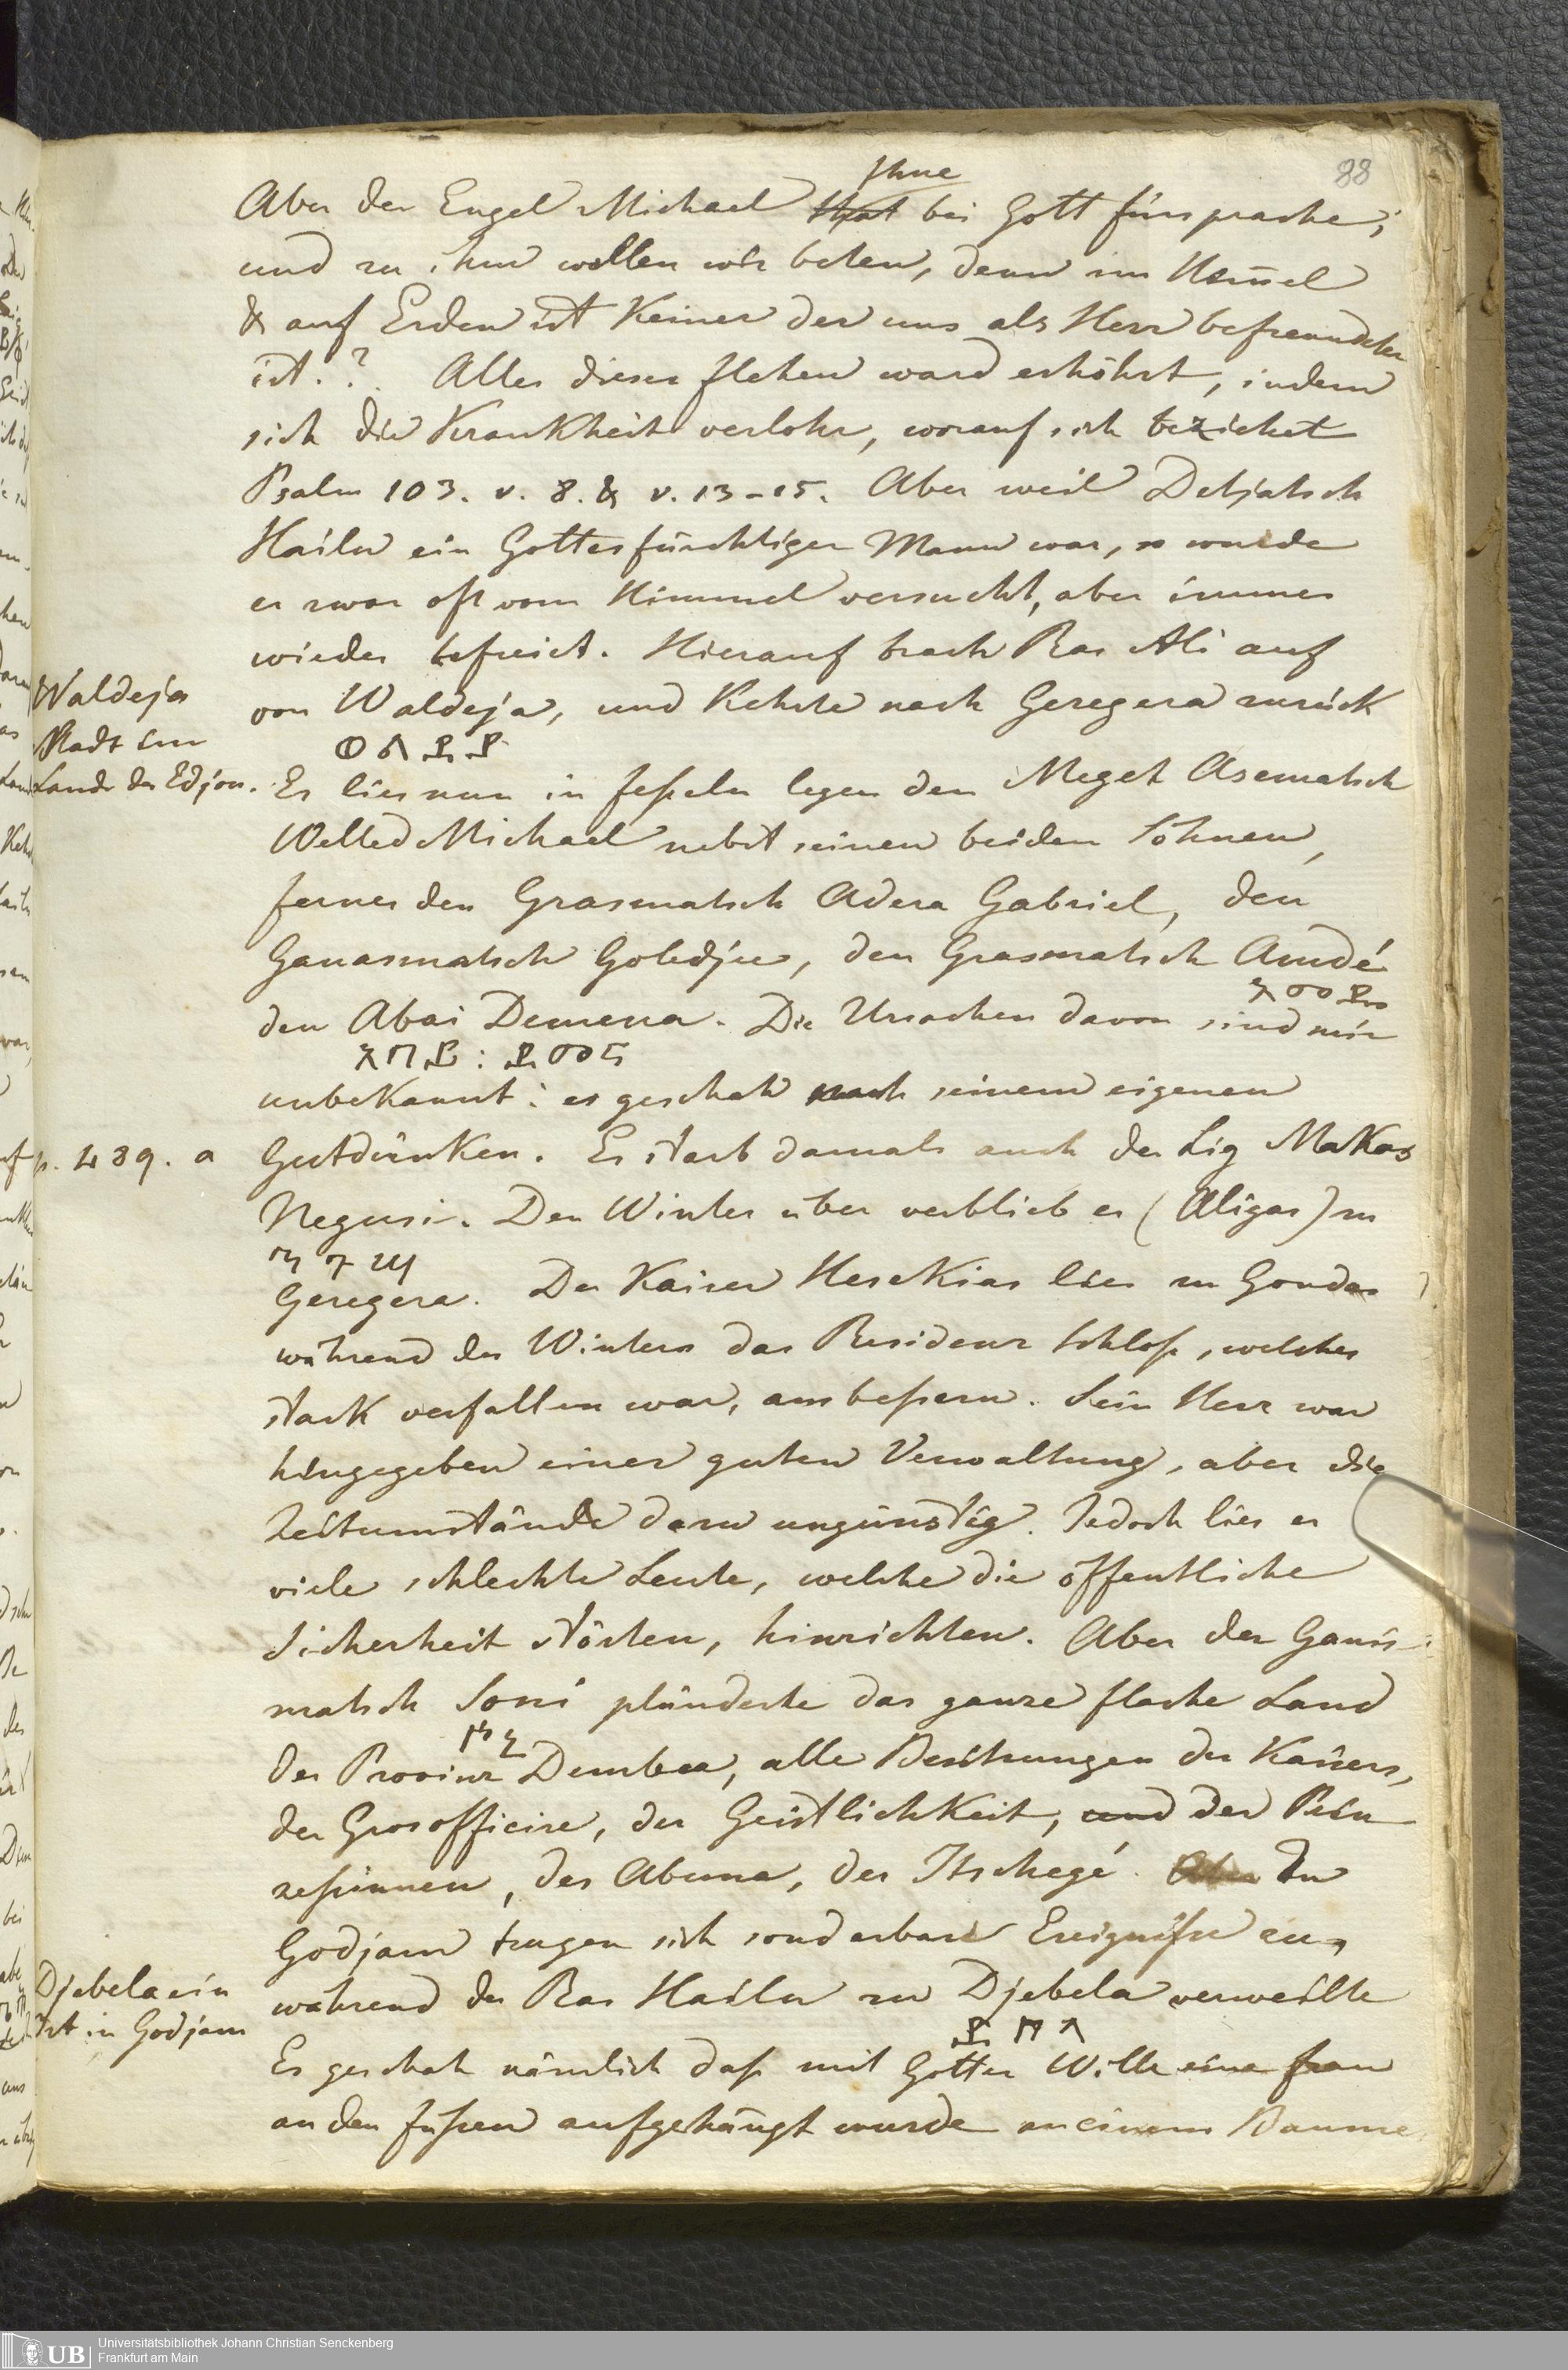 88
thue
Aber der Engel Michael that bei Gott fürsprache;
und zu ihm wollen wir beten, denn im Himel
& auf Erden ist Keiner der uns als Herr befreundeter
ist.? Alles dieses flehen ward erhöhrt, indem
sich die Krankheit verlohr, worauf sich beziehet
Psalm 103. v. 8. & v. 13-15. Aber weil Detjatsch
Hailu ein Gottesfürchtiger Mann war, so wurde
er zwar oft vom Himmel versucht, aber immer
wieder befreiet. Hierauf brach Ras Ali auf
von Waldeja, und Kehrte nach Geregera zurück
Waldeja
Stadt im
Lande der Edjou.
Er lies nun in feßeln legen den Meget Asematsch
Welled Michael nebst seinen beiden Söhnen,
ferner den Grasmatsch Adera Gabriel, den
Ganasmatsch Goledjus, den Grasmatsch Amdé
den Abai Demena. Die Ursachen davon sind mir
unbekannt: es geschah nach seinem eigenen
p. 489. a
Gutdünken. Es starb damals auch der Liq Makos
Negusi. Den Winter über verblieb er (Aligas) zu
Geregera. Der Kaiser Heskias lies zu Gondar
während des Winters das Residenz Schloß, welches
stark verfallen war, ausbeßern. Sein Herz war
hingegeben einer guten Verwaltung, aber die
Zeitumstände dazu ungünstig. Jedoch lies er
viele schlechte Leute, welche die öffentliche
Sicherheit störten, hinrichten. Aber der Ganis
matsch Soni plünderte das ganze flache Land
der Provinz Dembea, alle Besitzungen des Kaisers,
der Grosofficire, der Geistlichkeit, und der Prin
zeßinnen, des Abuna, des Itschegé. Aber In
Godjam trugen sich sonderbare Ereigniße zu,
während der Ras Hailu zu Djebela verweilte
Djebela ein
Ort in Godjam
Es geschah nämlich daß mit Gottes Wille eine frau
an den füßen aufgehängt wurde an einem Baume
UB Universitätsbibliothek Johann Christian Senckenberg
Frankfurt am Main